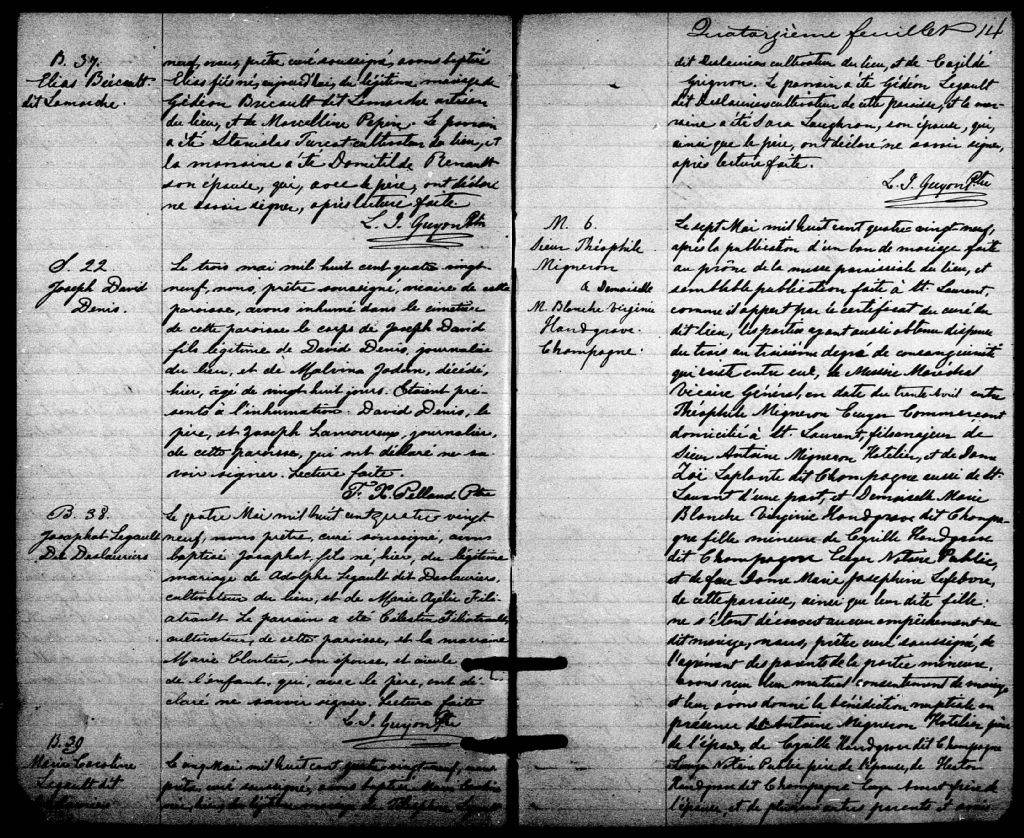 B. 37.
Elias Bricault
dit Lamarche.
neuf, nous, prêtre, curé soussigné, avons baptisé
Elias fils né, aujourd'hui, du légitime mariage de
Gédéon Bricault dit Lamarche artisan
du lieu, et de Marcelline Pepin. Le parrain
a été Stanislas Turcot cultivateur du lieu, et
la marraine a été Domitilde Renault
son épouse, qui, avec le père, ont déclaré
ne savoir signer, après lecture faite
L. J. Guyon Ptre
S. 22
Joseph David
Denis.
Le trois mai mil huit cent quatre vingt
neuf, nous, prêtre soussigné, vicaire de cette
paroisse, avons inhumé dans le cimetière
de cette paroisse le corps de Joseph David
fils légitime de David Denis, journalier
du lieu, et de Malvina Jodoin, décédé,
hier, âgé de vingt huit jours. Etaient pré-
sents à l'inhumation David Denis, le
père, et Joseph Lamoureux, journalier,
de cette paroisse, qui ont déclaré ne sa-
voir signer. Lecture faite.
F. X. Pellaud Ptre
B. 38.
Josaphat Legault
Dit Deslauriers
Le quatre Mai mil huit cent quatre vingt
neuf, nous prêtre, curé soussigné, avons
baptisé Josaphat, fils né, hier, du légitime
mariage de Adolphe Legault dit Deslauriers,
cultivateur du lieu, et de Marie Filia-
trault. Le parrain a été Célestin Filiatrault,
cultivateur, de cette paroisse, et la marraine
Marie Cloutier, son épouse, et aïeule
de l'enfant, qui, avec le père, ont dé-
claré ne savoir signer. Lecture faite
L. J. Guyon Ptre
B. 39
Marie Caroline
Legault dit
Deslauriers
Le Mai mil huit cent quatre vingt neuf, nous
prêtre curé soussigné, avons baptisé Marie Caroline
née, hier, du légitime mariage de Legault
Quatorzième feuillet 14
dit Deslauriers cultivateur du lieu, et de Cazilde
Grignon. Le parrain a été Gédéon Legault
dit Deslauriers cultivateur de cette paroisse, et la mar-
raine a été Sara Laughran, son épouse, qui,
ainsi que le père, ont déclaré ne savoir signer,
après lecture faite.
L. J. Guyon Ptre
M. 6
Sieur Théophile
Migneron
& Demoiselle
M. Blanche Virginie
Handgrave
Champagne.
Le sept Mai mil huit cent quatre vingt neuf,
après la publication d'un ban de mariage faite
au prône de la messe paroissiale du lieu, et
semblable publication faite à St. Laurent,
comme il appert par le certificat du curé du
dit lieu, les parties ayant aussi obtenu dispense
du trois au troisième degré de consanguinité
qui existe entre eux, de Messire Maréchal
Vicaire Général, en date du trente Avril entre
Théophile Migneron Ecuyer Commercant
domicilié à St. Laurent, fils majeur de
Sieur Antoine Migneron Hotelier, et de Dame
Zoé Laplante dit Champagne aussi de St.
Laurent d'une part, et Demoiselle Marie
Blanche Virginie Handgrave dit Champa-
gne fille mineure de Cyrille Handgrave
dit Champagne Ecuyer Notaire Public,
et de feue Dame Marie Josephine Lefebvre,
de cette paroisse, ainsi que leur dite fille:
ne s'étant découvert aucun empêchement au
dit mariage, nous, prêtre curé soussigné, de
l'agrément des parents de la partie mineure,
avons reçu leur mutuel consentement de mariage
et leur avons donné la bénédiction nuptiale en
présence de Antoine Migneron Hotelier père
de l'époux, de Cyrille Handgrave dit Champagne
Ecuyer Notaire Public père de l'épouse, de Hector
Handgrave dit Champagne Ecuyer Avocat frère de
l'épouse, et de plusieurs autres parents et amis